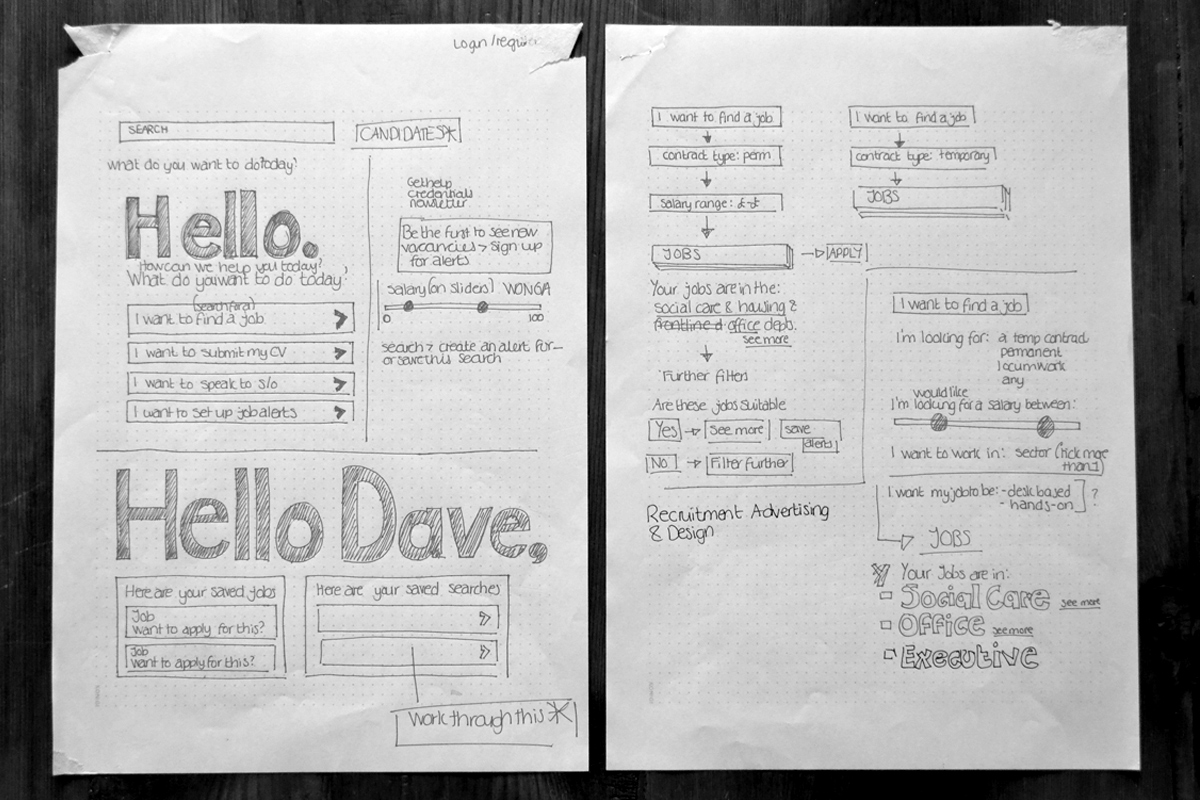 Login /
SEARCH
CANDIDATES*
what do you want to do today?
Hello.
How can we help you today?
What do you want to do today?
(search for a)
I want to find a job
I want to submit my CV
I want to speak to s/o
I want to set up job alerts
Get help
credentials
newsletter
Be the first to see new
vacancies > sign up
for alerts
salary (on sliders) WONGA
0 100
search > create an alert for
or save this search
Hello Dave,
Here are your saved jobs
Job
want to apply for this?
Job
want to apply for this?
Here are your saved searches
work through this *
I want to find a job
contract type: perm
salary range: £-£
JOBS
APPLY
Your jobs are in the:
social care & housing &
frontline d office depts.
see more
Further filters
Are these jobs suitable
Yes
see more
save
alerts
No
Filter further
Recruitment Advertising
& Design
I want to find a job
contract type: temporary
JOBS
I want to find a job
I'm looking for: a temp contract
permanent
locum work
any
would like
I'm looking for a salary between:
I want to work in: sector (tick more
than 1)
I want my job to be: - desk based
- hands-on ?
JOBS
Your Jobs are in:
Social Care see more
Office see more
Executive